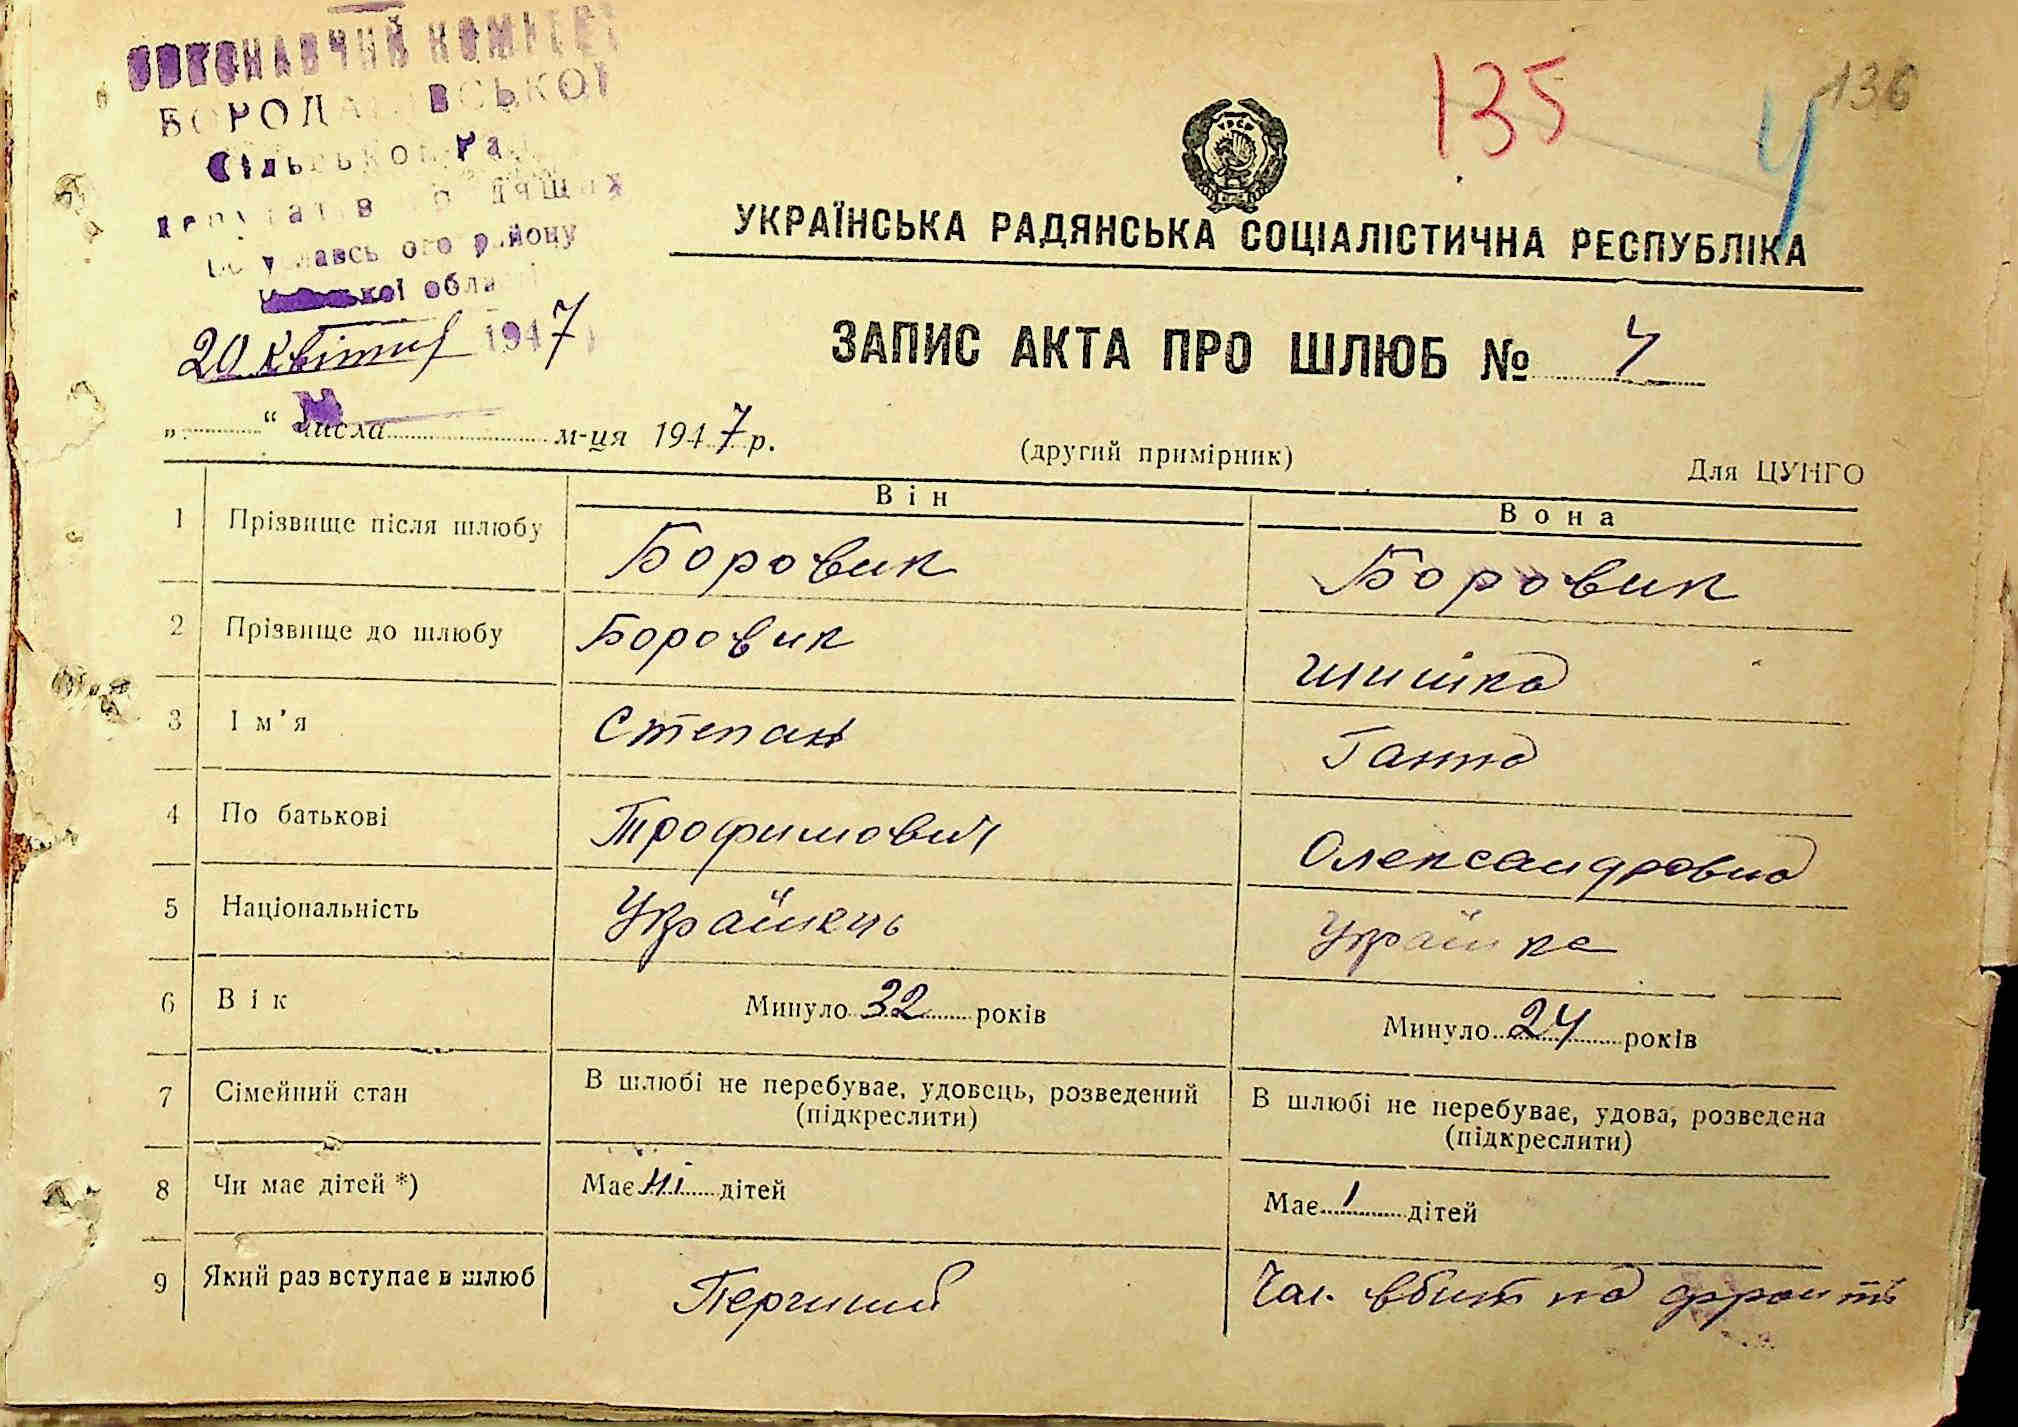 ВИКОНАВЧИЙ КОМІТЕТ
135
136
4
Сільської Ради
депутатів трудящих
району
області
УРСР
УКРАЇНСЬКА РАДЯНСЬКА СОЦІАЛІСТИЧНА РЕСПУБЛІКА
20 квітня 1947
ЗАПИС АКТА ПРО ШЛЮБ № 4
„ “ числа м-ця 1947 р.
(другий примірник)
Для ЦУНГО
Він
Вона
1 Прізвище після шлюбу Боровик Боровик
2 Прізвище до шлюбу Боровик Шишка
3 Ім’я Степан Ганна
4 По батькові Трофимович Олександровна
5 Національність Українець Українка
6 Вік Минуло 32 років Минуло 24 років
7 Сімейний стан В шлюбі не перебуває, удовець, розведений В шлюбі не перебуває, удова, розведена
(підкреслити) (підкреслити)
8 Чи має дітей *) Має ні дітей Має 1 дітей
9 Який раз вступає в шлюб Перший Чол. вбит на фронті